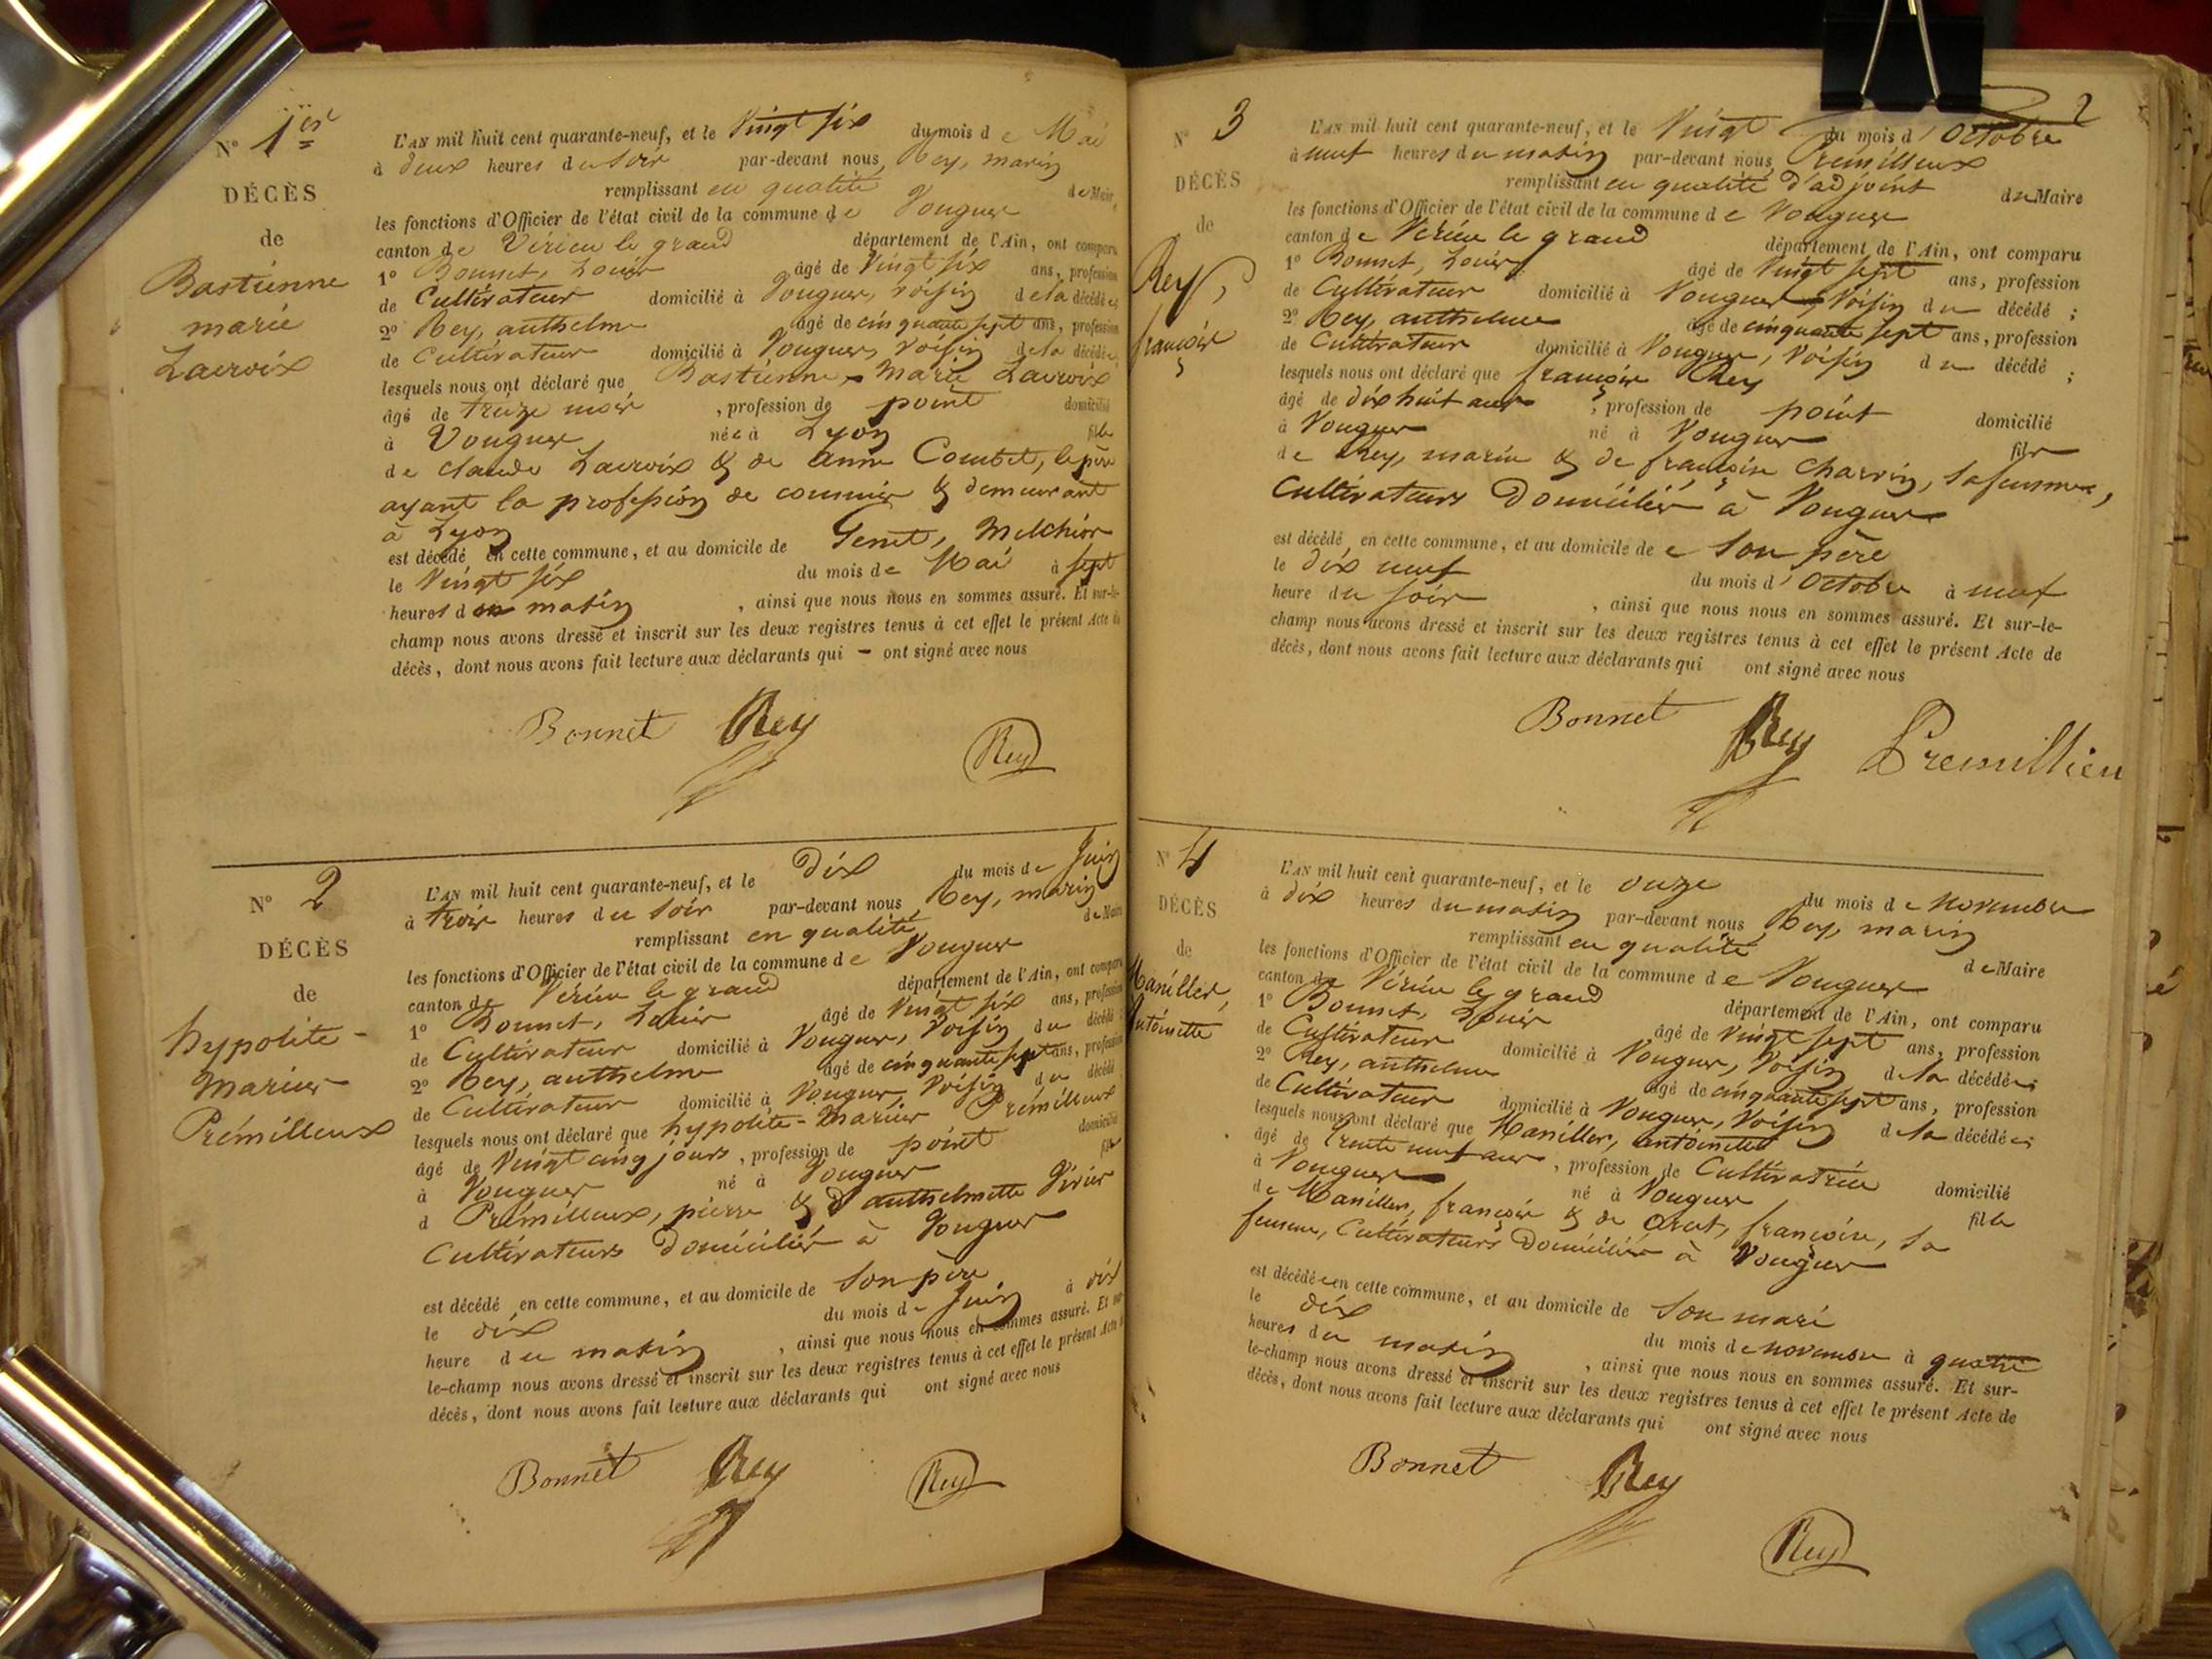 N° 1er
DÉCÈS
de
Bastienne
marie
Lacroix
L'AN mil huit cent quarante-neuf, et le Vingt six du mois de Mai
à deux heures du soir par-devant nous, Rey, marin
remplissant en qualité de Maire
les fonctions d'Officier de l'état civil de la commune de Vongnes
canton de Virieu le grand département de l'Ain, ont comparu
1° Bonnet, Louis âgé de Vingt six ans, profession
de Cultivateur domicilié à Vongnes, voisin de la décédée
2° Rey, anthelme âgé de cinquante sept ans, profession
de Cultivateur domicilié à Vongnes, Voisin de la décédée
lesquels nous ont déclaré que Bastienne - Marie Lacroix
âgé de treize mois , profession de point domicilié
à Vongnes née à Lyon fille
de claude Lacroix & de anne Combet, le père
ayant la profession de commis & demeurant
à Lyon
est décédé en cette commune, et au domicile de Genet, Melchior
le Vingt six du mois de Mai à sept
heures du matin , ainsi que nous nous en sommes assuré. Et sur-le-
champ nous avons dressé et inscrit sur les deux registres tenus à cet effet le présent Acte de
décès, dont nous avons fait lecture aux déclarants qui - ont signé avec nous
Bonnet Rey Rey
N° 2
DÉCÈS
de
hypolite -
Marius
Prémilleux
L'AN mil huit cent quarante-neuf, et le Dix du mois de Juin
à trois heures du soir par-devant nous Rey, marin
remplissant en qualité de Maire
les fonctions d'Officier de l'état civil de la commune de Vongnes
canton de Virieu le grand département de l'Ain, ont comparu
1° Bonnet, Louis âgé de Vingt six ans, profession
de Cultivateur domicilié à Vongnes, Voisin du décédé
2° Rey, anthelme âgé de cinquante sept ans, profession
de Cultivateur domicilié à Vongnes, Voisin du décédé
lesquels nous ont déclaré que hypolite - Marius Prémilleux
âgé de Vingt cinq jours , profession de point domicilié
à Vongnes né à Vongnes fils
d Prémilleux, pierre & d'anthelmette
Cultivateurs Domiciliés à Vongnes
est décédé en cette commune, et au domicile de son père
le dix du mois de Juin à dix
heure du matin , ainsi que nous nous en sommes assuré. Et sur-
le-champ nous avons dressé et inscrit sur les deux registres tenus à cet effet le présent Acte de
décès, dont nous avons fait lecture aux déclarants qui ont signé avec nous
Bonnet Rey Rey
2
N° 3
DÉCÈS
de
Rey,
françois
L'AN mil huit cent quarante-neuf, et le Vingt du mois d'Octobre
à neuf heures du matin par-devant nous, Prémilleux
remplissant en qualité d'adjoint du Maire
les fonctions d'Officier de l'état civil de la commune de Vongnes
canton de Virieu le grand département de l'Ain, ont comparu
1° Bonnet, Louis âgé de Vingt sept ans, profession
de Cultivateur domicilié à Vongnes, Voisin du décédé ;
2° Rey, anthelme âgé de cinquante sept ans, profession
de Cultivateur domicilié à Vongnes, Voisin du décédé ;
lesquels nous ont déclaré que françois Rey
âgé de dix huit ans , profession de point domicilié
à Vongnes né à Vongnes fils
de Rey, marin & de françoise Charvin, sa femme,
Cultivateurs Domiciliés à Vongnes
est décédé en cette commune, et au domicile de son père
le dix neuf du mois d'Octobre à neuf
heure du soir , ainsi que nous nous en sommes assuré. Et sur-le-
champ nous avons dressé et inscrit sur les deux registres tenus à cet effet le présent Acte de
décès, dont nous avons fait lecture aux déclarants qui ont signé avec nous
Bonnet Rey Premillieu
N° 4
DÉCÈS
de
Maniller,
antoinette
L'AN mil huit cent quarante-neuf, et le onze du mois de Novembre
à dix heures du matin par-devant nous Rey, marin
remplissant en qualité de Maire
les fonctions d'Officier de l'état civil de la commune de Vongnes
canton de Virieu le grand département de l'Ain, ont comparu
1° Bonnet, Louis âgé de Vingt sept ans, profession
de Cultivateur domicilié à Vongnes, Voisin de la décédée ;
2° Rey, anthelme âgé de cinquante sept ans, profession
de Cultivateur domicilié à Vongnes, Voisin de la décédée ;
lesquels nous ont déclaré que Maniller, antoinette
âgé de trente neuf ans , profession de Cultivatrice domicilié
à Vongnes né à Vongnes fille
de Maniller, françois & de françoise, sa
femme, Cultivateurs Domiciliés à Vongnes
est décédée en cette commune, et au domicile de son mari
le dix du mois de Novembre à quatre
heures du matin , ainsi que nous nous en sommes assuré. Et sur-
le-champ nous avons dressé et inscrit sur les deux registres tenus à cet effet le présent Acte de
décès, dont nous avons fait lecture aux déclarants qui ont signé avec nous
Bonnet Rey Rey